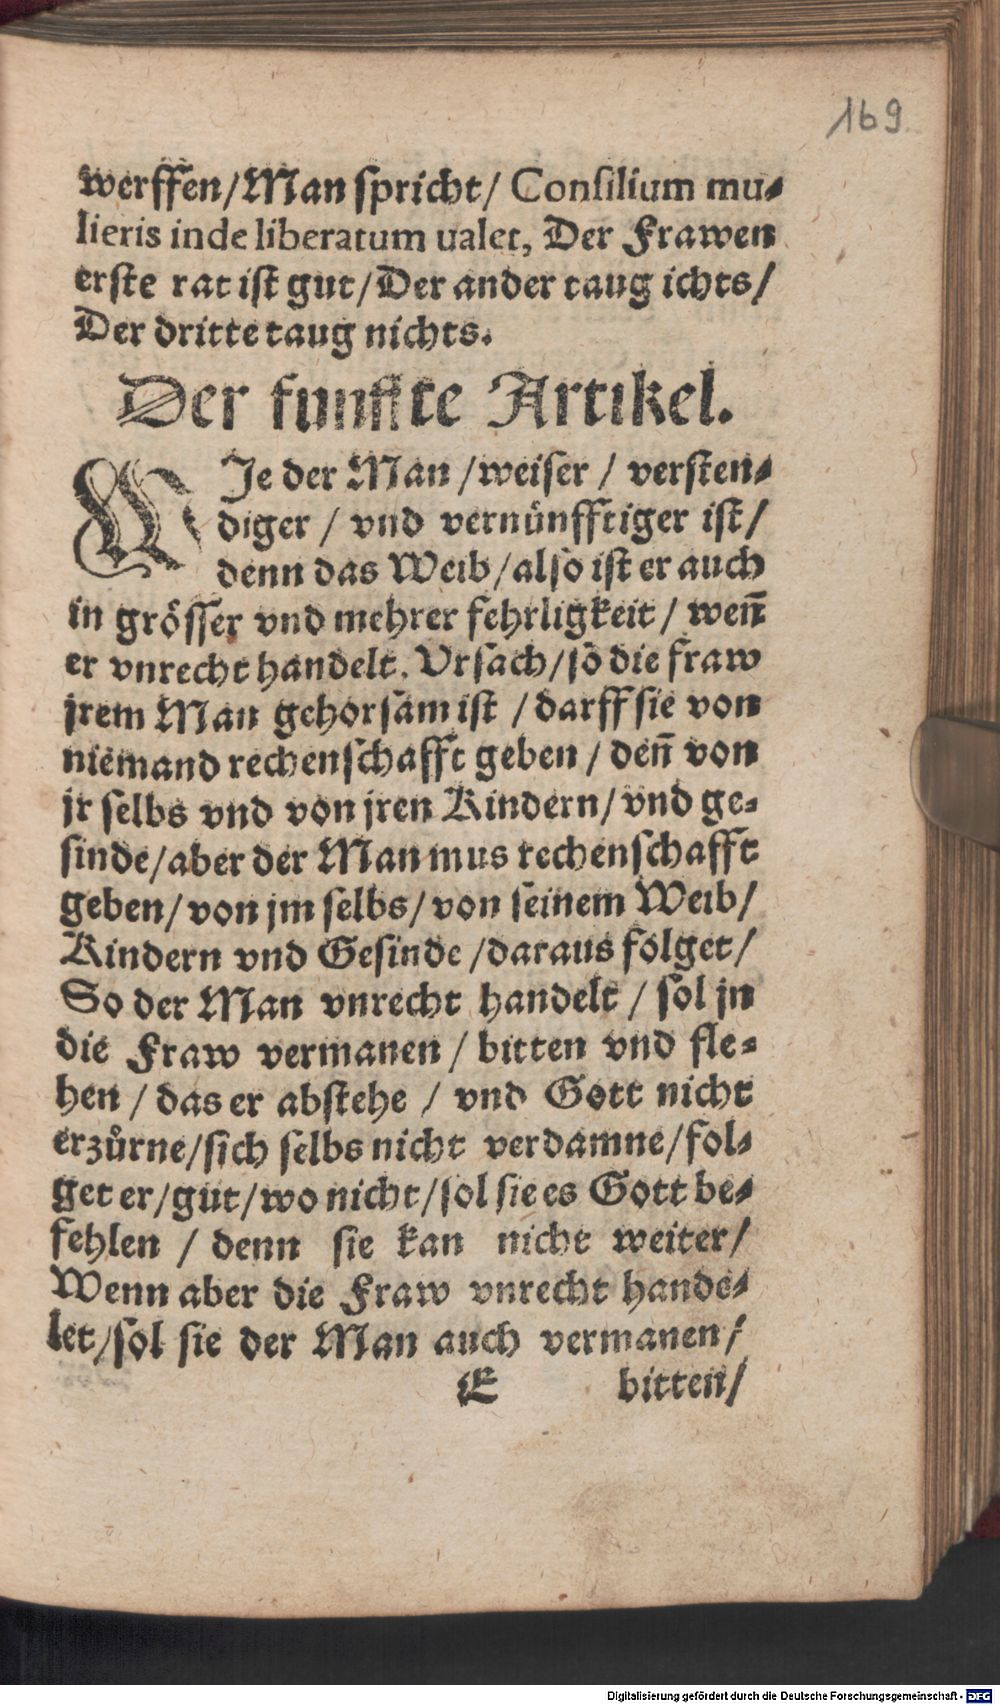 169
werffen/Man spricht/ Consilium mu-
lieris inde liberatum ualet, Der Frawen
erste rat ist gut/Der ander taug ichts/
Der dritte taug nichts.
Der funffte Artikel.
WJe der Man /weiser / versten-
diger / vnd vernünfftiger ist/
denn das Weib/also ist er auch
in grösser vnd mehrer fehrligkeit / weñ
er vnrecht handelt. Vrsach/so die fraw
jrem Man gehorsam ist / darff sie von
niemand rechenschafft geben / deñ von
jr selbs vnd von jren Kindern/ vnd ge-
sinde/aber der Man mus rechenschafft
geben/ von jm selbs/ von seinem Weib/
Kindern vnd Gesinde /daraus folget/
So der Man vnrecht handelt / sol jn
die Fraw vermanen / bitten vnd fle-
hen / das er abstehe / vnd Gott nicht
erzürne/sich selbs nicht verdamne/fol-
get er/gut/wo nicht/sol sie es Gott be-
fehlen / denn sie kan nicht weiter/
Wenn aber die Fraw vnrecht hande-
let/sol sie der Man auch vermanen/
E bitten/
Digitalisierung gefördert durch die Deutsche Forschungsgemeinschaft - DFG